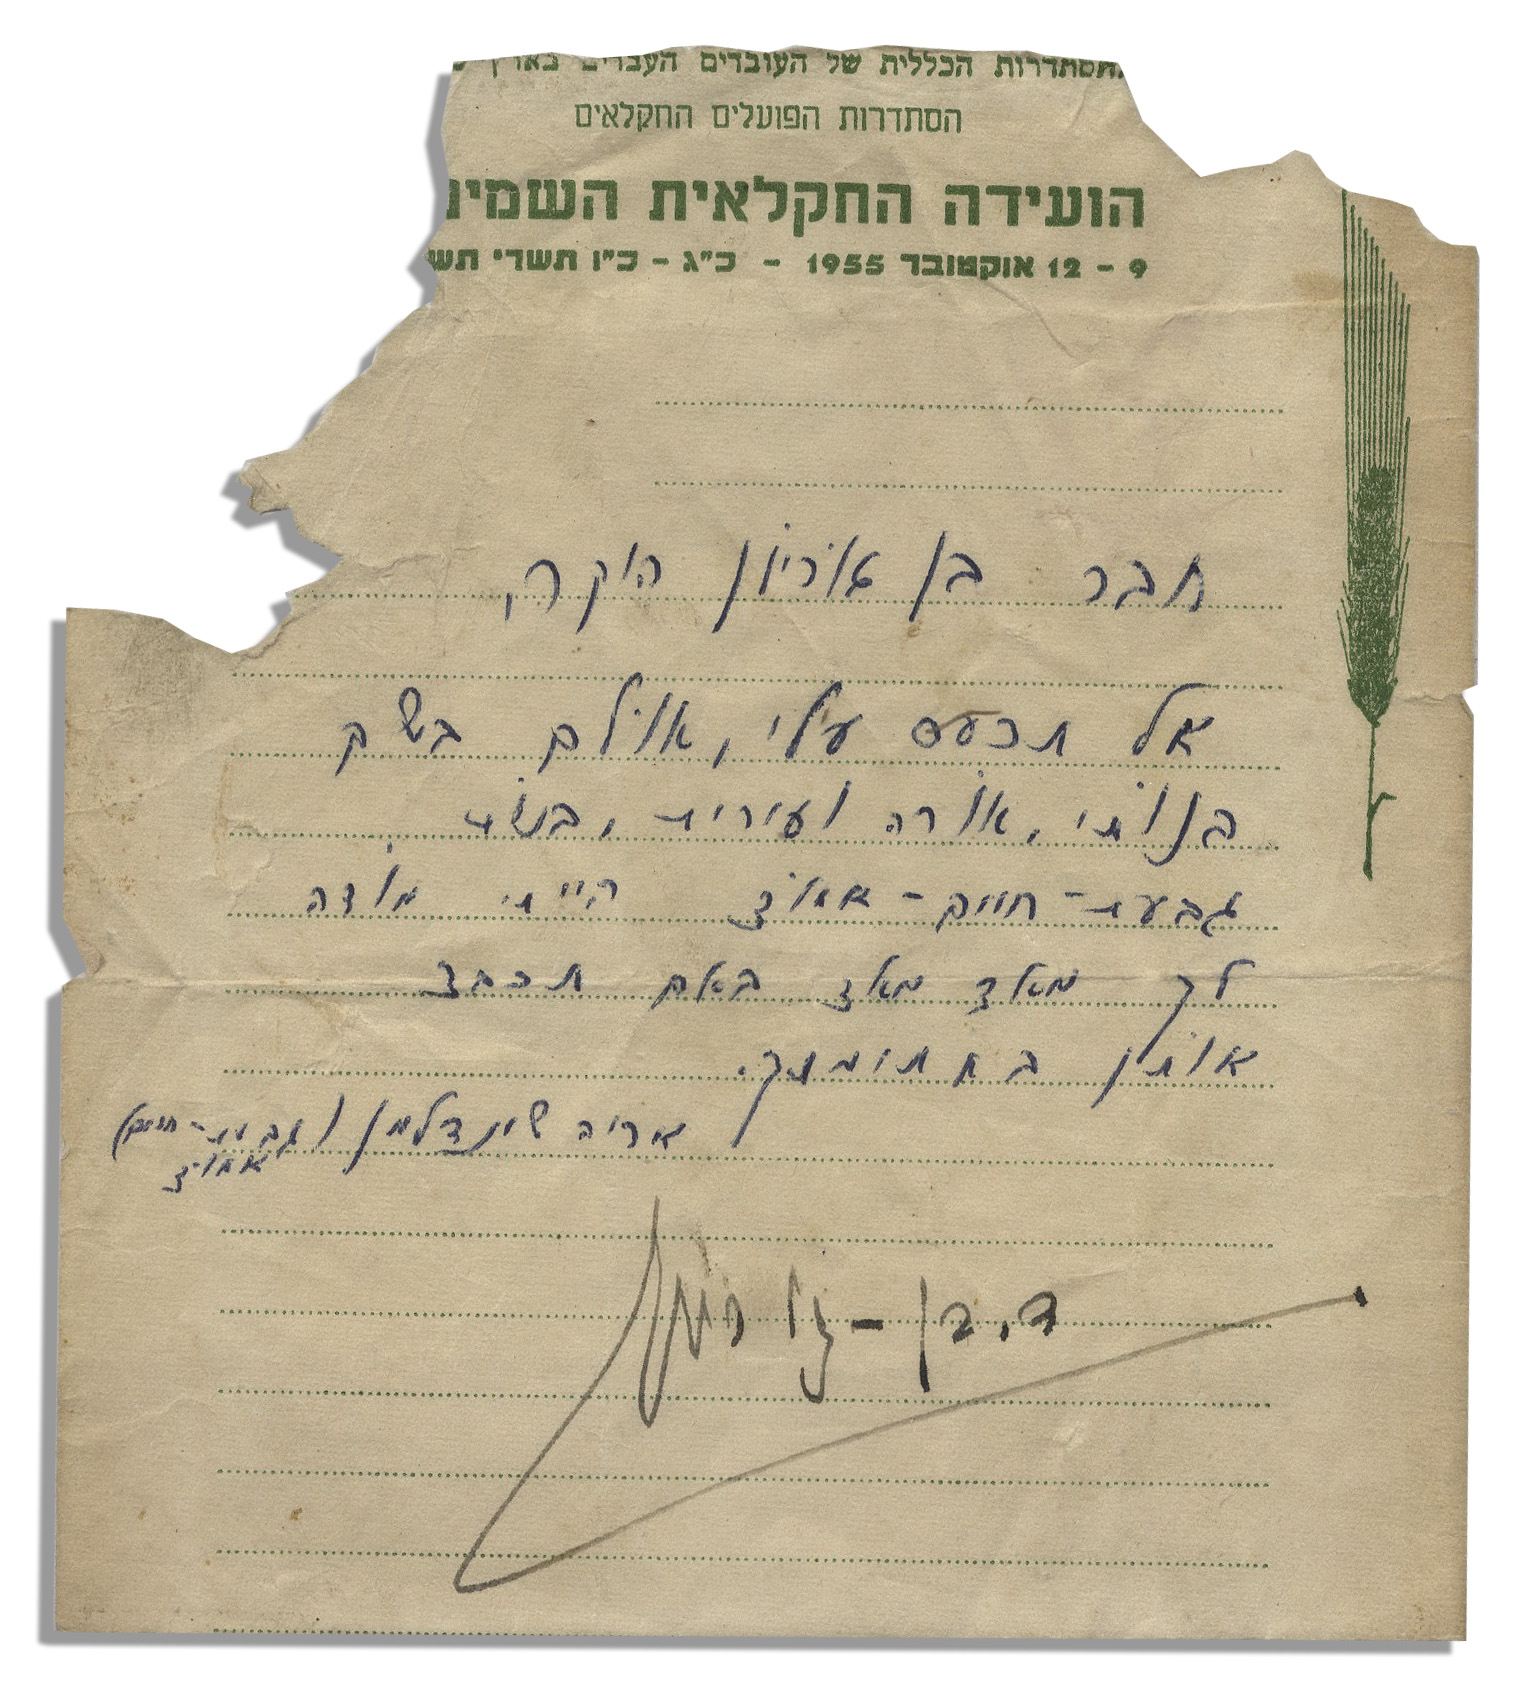 הסתדרות הכללית של העובדים העברים בארץ
הסתדרות הפועלים החקלאים
הועידה החקלאית השמינ
9 - 12 אוקטובר 1955 - כ"ג - כ"ו תשרי תש
חבר בן גוריון היקר,
אל תכעס עלי, אולם בשם
בנותי, אורה ועירית,
גבעת-חיים-אמוץ הייתי מודה
לך מאד מאד באם תכבד
אותן בחתומתך.
אריה שינדלמן (גבעת-חיים)
אמוץ
ד. בן-גוריון